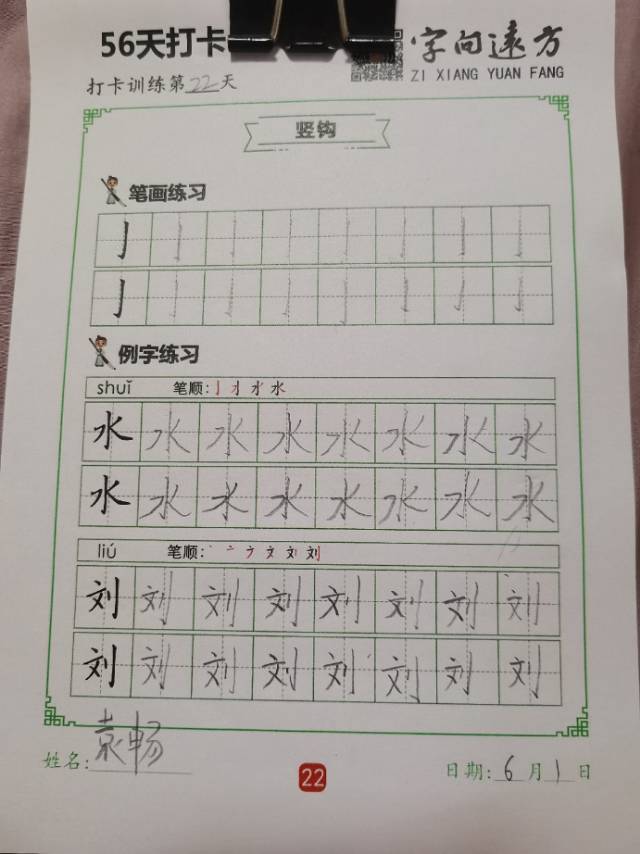 56天打卡
字向远方
ZI XIANG YUAN FANG
打卡训练第22天
竖钩
笔画练习
亅
亅
例字练习
shuǐ 笔顺:亅水
水水水水水水水水
水水水水水水水水
liú 笔顺:刘
刘刘刘刘刘刘刘刘
刘刘刘刘刘刘刘刘
姓名:袁畅
22
日期:6月1日